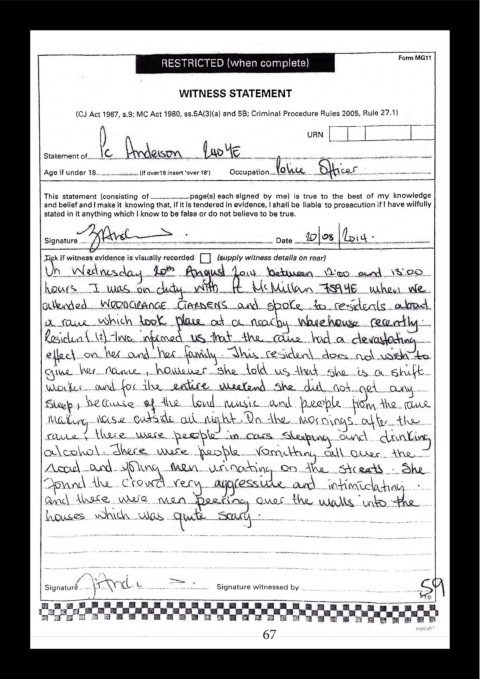 Form MG11
RESTRICTED (when complete)
WITNESS STATEMENT
(CJ Act 1967, s.9; MC Act 1980, ss.5A(3)(a) and 5B; Criminal Procedure Rules 2005, Rule 27.1)
URN
Statement of Pc Anderson
Age if under 18 (if over 18 insert 'over 18') Occupation Police Officer
This statement (consisting of page(s) each signed by me) is true to the best of my knowledge
and belief and I make it knowing that, if it is tendered in evidence, I shall be liable to prosecution if I have wilfully
stated in it anything which I know to be false or do not believe to be true.
Signature Date 20/08/2014.
Tick if witness evidence is visually recorded (supply witness details on rear)
On Wednesday 20th August 2014 between 12:00 and 15:00
hours I was on duty with Pc McMillan when we
attended WOODGRANGE GARDENS and spoke to residents about
a rave which took place at a nearby warehouse recently.
Resident informed us that the rave had a devastating
effect on her and her family. This resident does not wish to
give her name, however she told us that she is a shift
worker and for the entire weekend she did not get any
sleep, because of the loud music and people from the rave
making noise outside all night. On the mornings after the
rave, there were people in cars sleeping and drinking
alcohol. There were people vomitting all over the
road and young men urinating on the streets. She
found the crowd very aggressive and intimidating.
and there were men peering over the walls into the
houses which was quite scary.
Signature Signature witnessed by
59
PTO
67